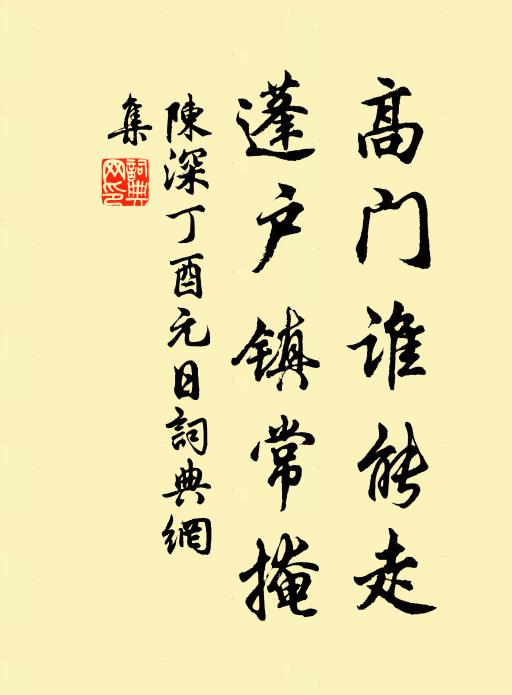 高门谁能走
蓬户镇常掩
陳深丁酉元日詞典網
集
詞典网印